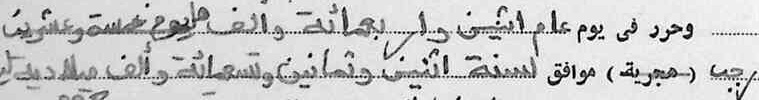 وحرر فى يوم عام اثنين واربعمائة والف يوم خمسة وعشرين
رجب (هجرية) موافق لسنة اثنين وثمانين وتسعمائة وألف ميلادية